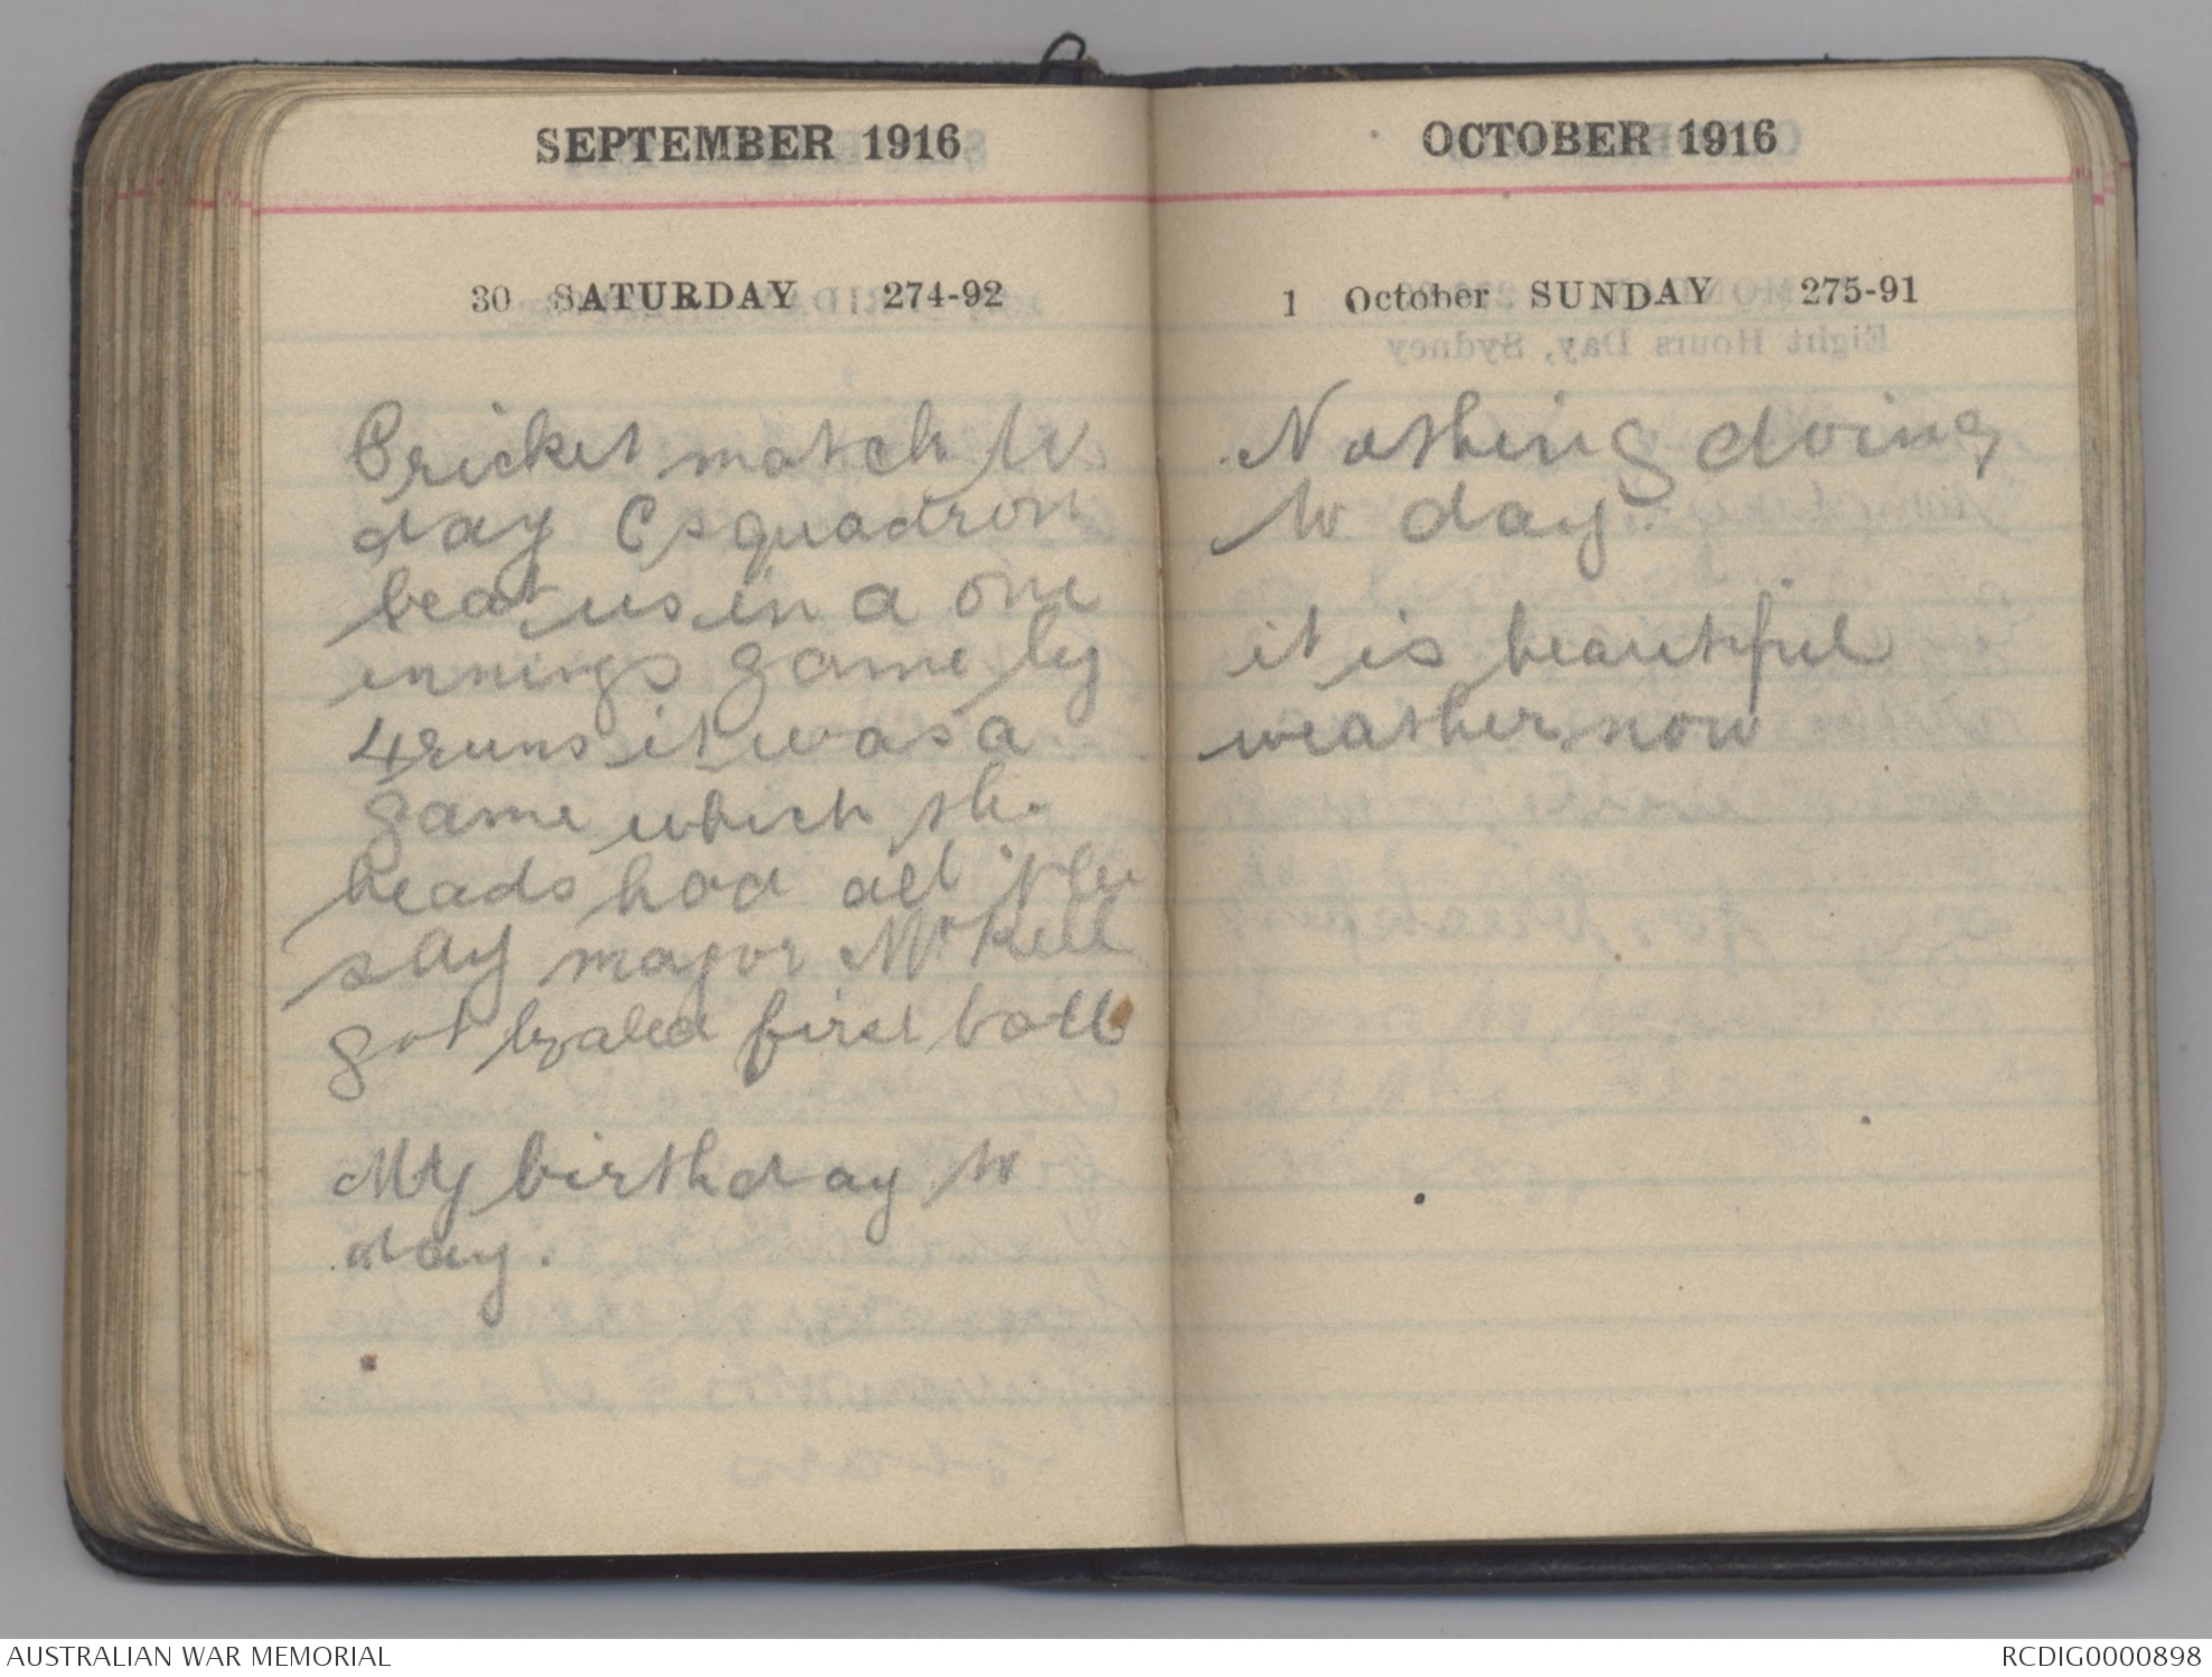 SEPTEMBER 1916
30 SATURDAY 274-92
Cricket match to
day C squadron
beat us in a one
innings game by
4 runs it was a
game which the
heads had all the
say major McKell
got first ball
My birthday to
day.
OCTOBER 1916
1 October SUNDAY 275-91
Nothing doing
to day.
it is beautiful
weather now
AUSTRALIAN WAR MEMORIAL
RCDIG0000898